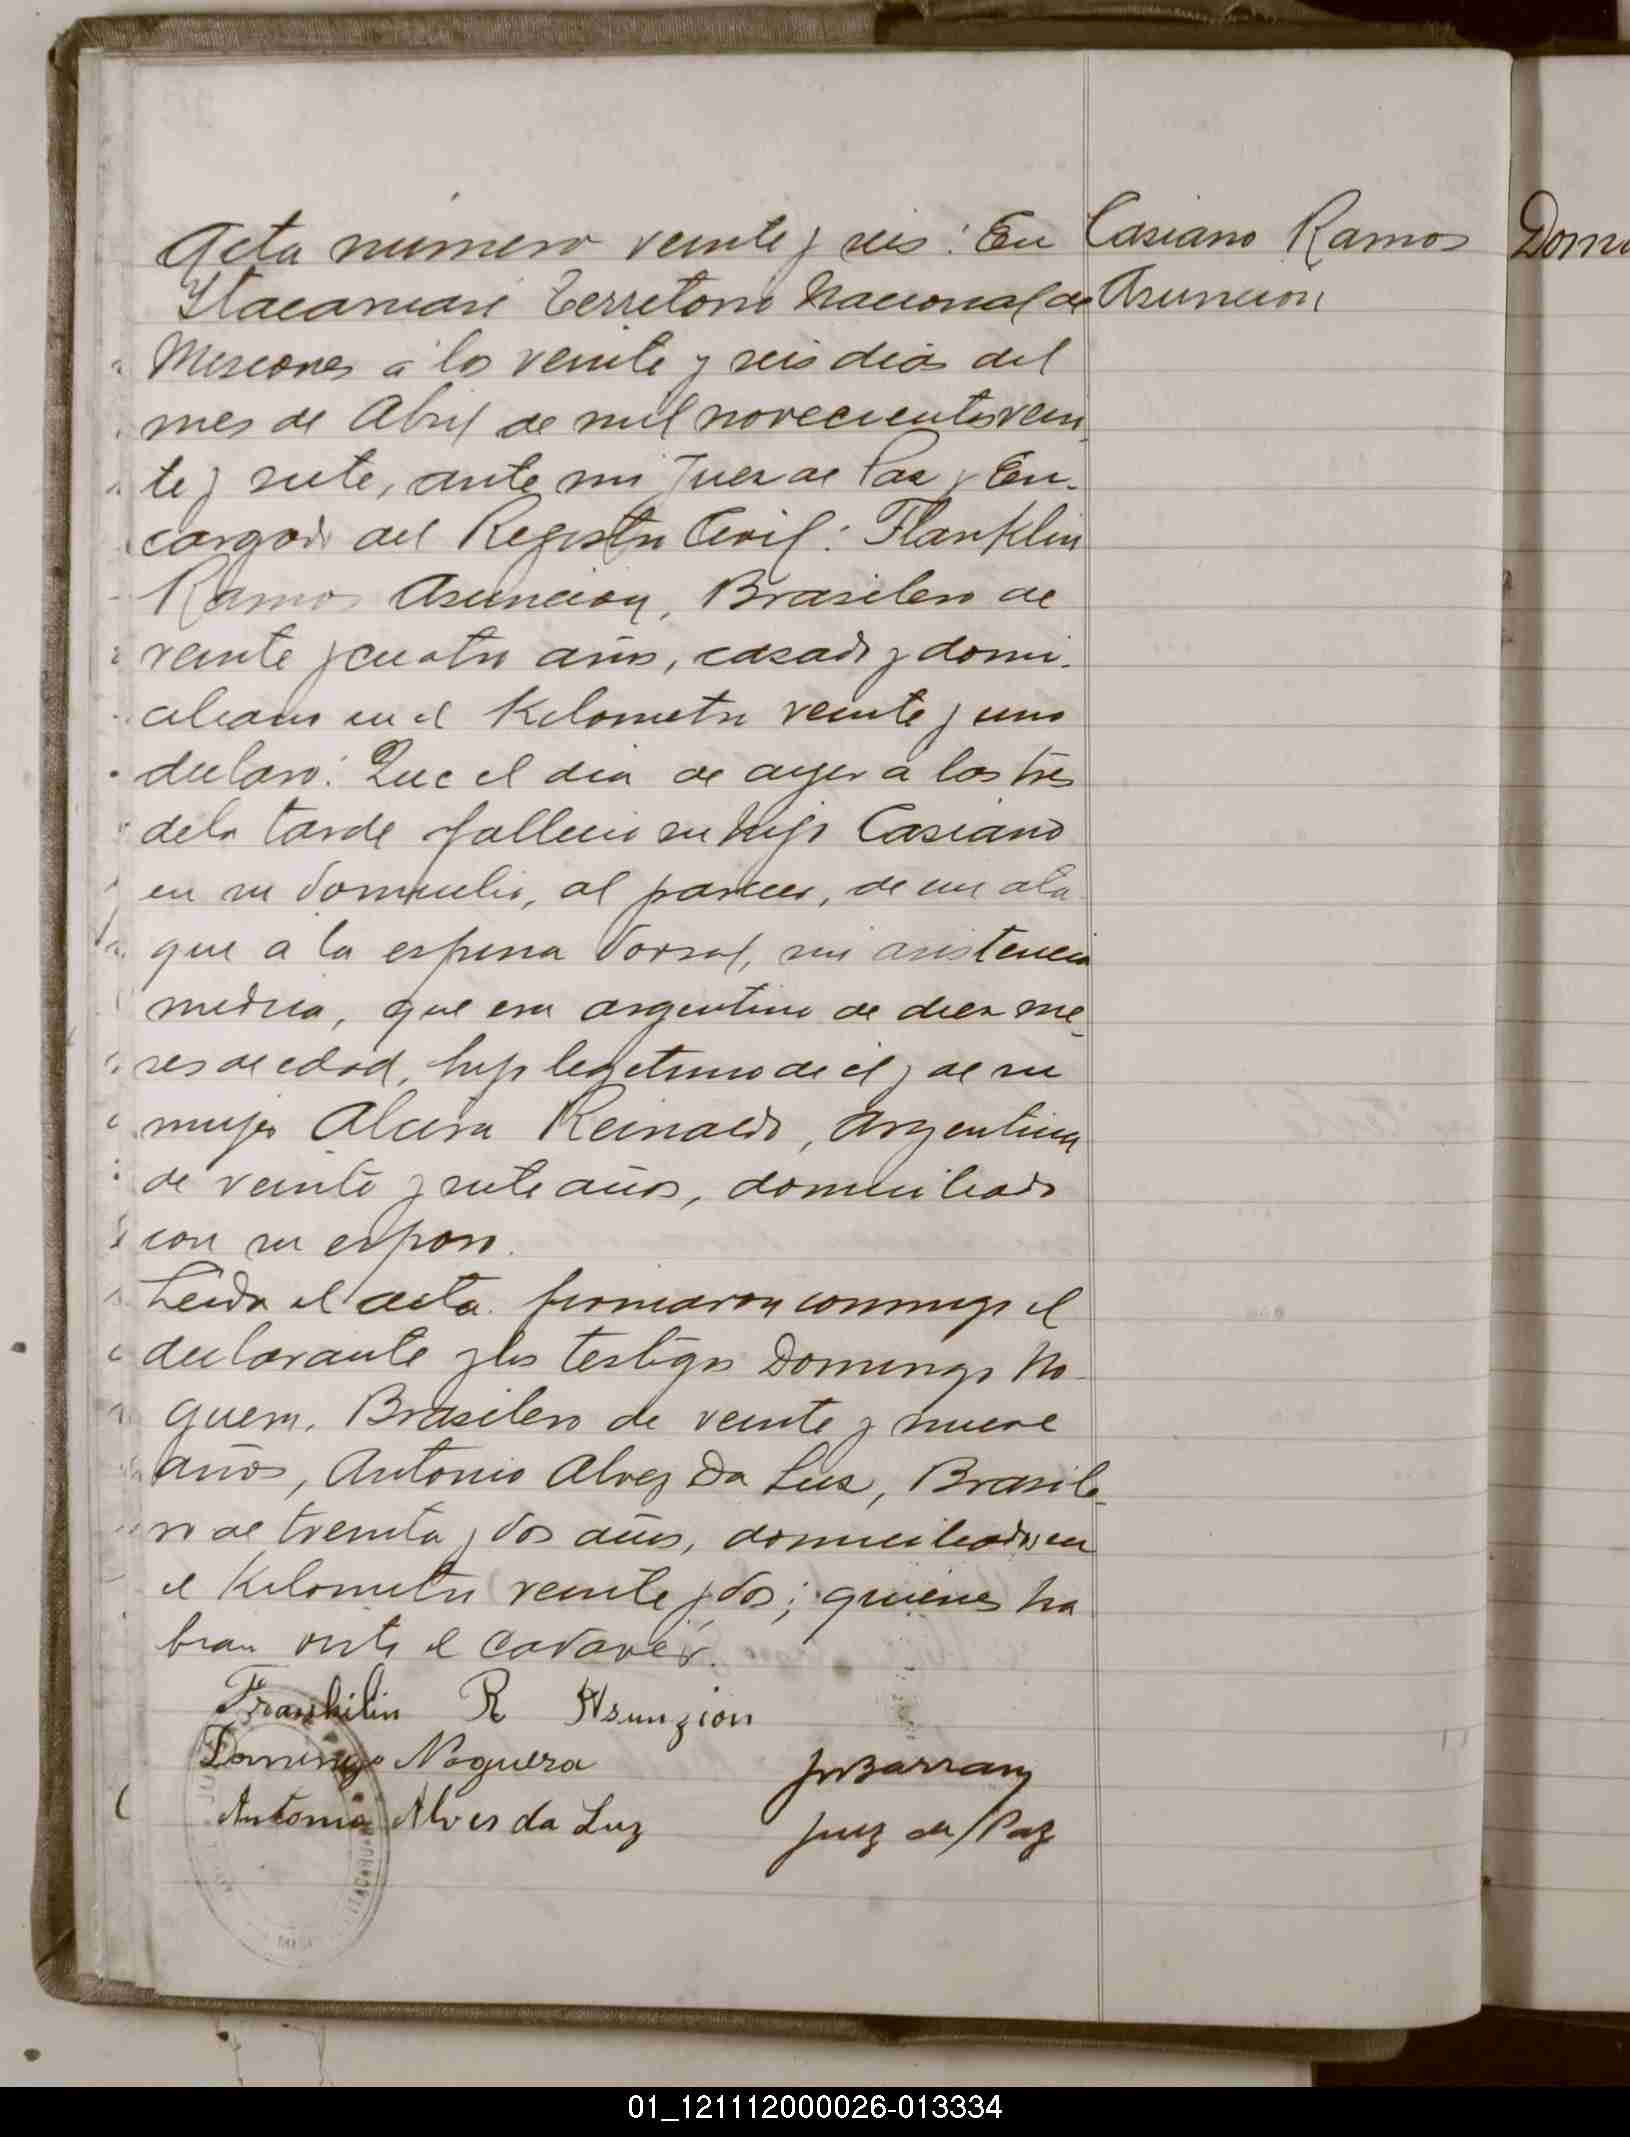 Acta número veinte y seis: En
Itacaruaré Territorio Nacional de
Misiones a los veinte y seis dias del
mes de Abril de mil novecientos vein
te y siete, ante mi Juez de Paz y En-
cargado del Registro Civil: Flanklin
Ramos Asuncion, Brasilero de
veinte y cuatro años, casado y domi-
ciliado en el Kilometro veinte y uno
declaró: Que el dia de ayer a las tres
de la tarde fallecio su hijo Casiano
en su domicilio, al parecer, de un ata-
que a la espina dorsal, sin asistencia
medica, que era argentino de diez me-
ses de edad, hijo legitimo de el y de su
mujer Alcira Reinaldo, argentina
de veinte y siete años, domiciliado
con su esposo.
Leida el acta firmaron conmigo el
declarante y los testigos Domingo No-
guera, Brasilero de veinte y nueve
años, Antonio Alvez Da Luz, Brasile-
ro de treinta y dos años, domiciliados en
el Kilometro veinte y dos; quienes ha
bian visto el cadaver.
Frankilin R Asunzion
Domingo Noguera
Antonio Alves da Luz
Juez de Paz
Casiano Ramos
Asuncion
Domi
01_121112000026-013334